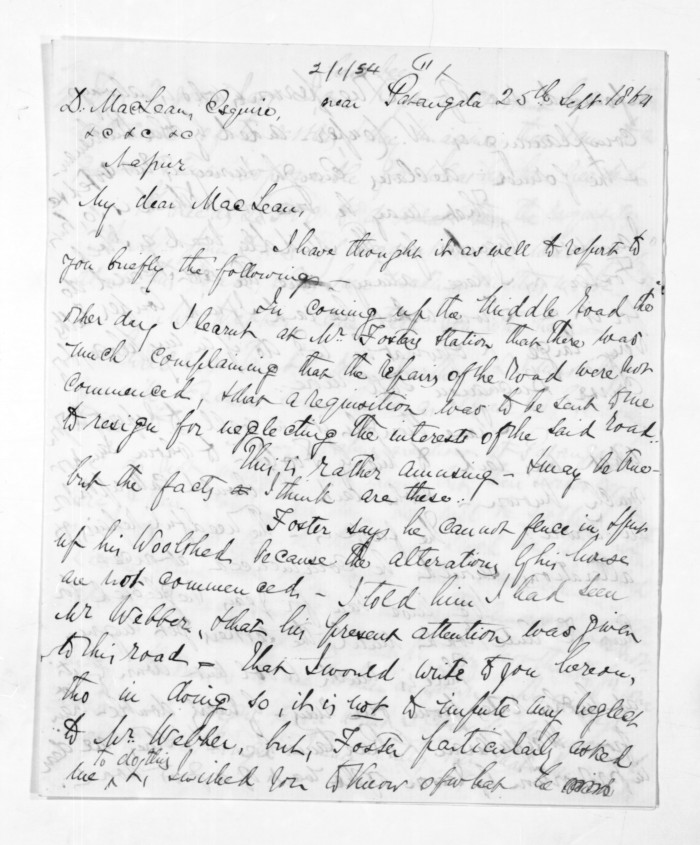 2/1/54
D. MacLean, Esquire,
near Patangata 25th Sept 1864
&c &c &c
Napier
My dear MacLean,
I have thought it as well to report to
you briefly the following —
In coming up the Middle Road the
other day I learnt at Mr. Fosters Station that there was
much complaining that the repairs of the Road were not
commenced, & that a requisition was to be sent to me
to resign for neglecting the interests of the said Road..
This is rather amusing — & may be true —
but the facts I think are these:
Foster says he cannot fence in, or put
up his Woolshed because the alterations of his house
are not commenced — I told him I had seen
Mr Webber, & that his present attention was given
to this road — That I would write to you hereon,
tho in doing so, it is not to impute any neglect
to Mr. Webber, but, Foster particularly asked
me to do this, & wished you to know of what he